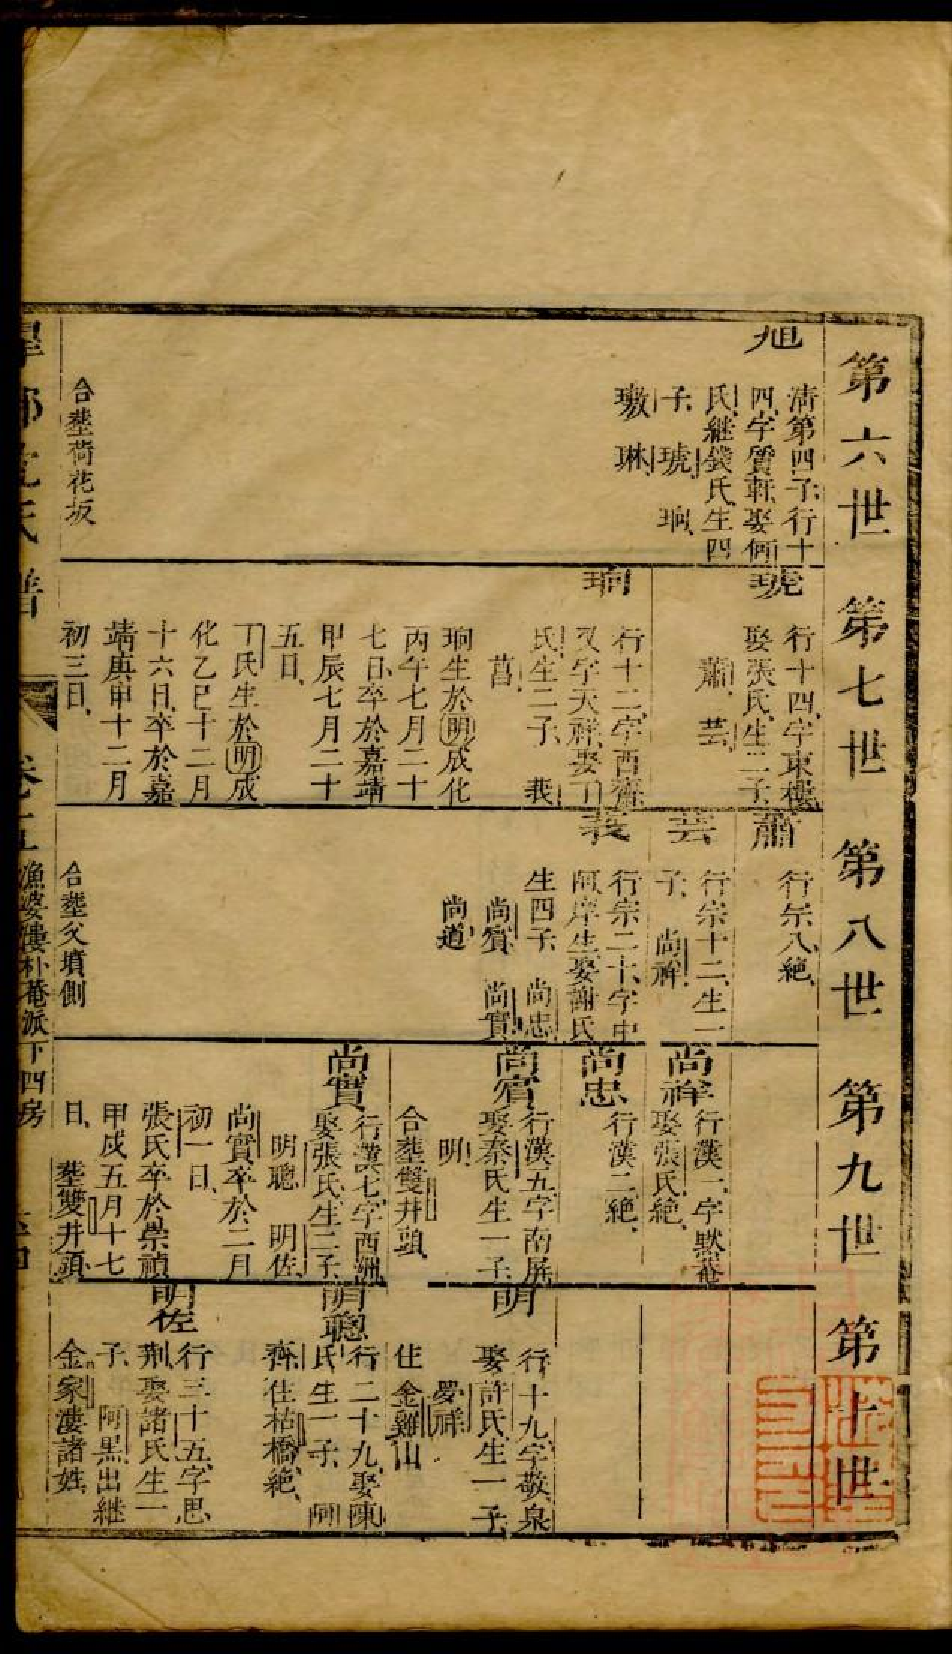 第六世
第七世
第八世
第九世
第十世
旭
清第四子行十
四字質軒娶何
氏繼錢氏生四
子 琥 珦
璥 琳
合塟荷花坂
琥
行十四字東樓
娶張氏生二子
蕭 芸
珦
行十二字西齋
又字天祥娶丁
氏生二子 莪
菖
珦生於明成化
丙午七月二十
七日卒於嘉靖
甲辰七月二十
五日
丁氏生於明成
化乙巳十二月
十六日卒於嘉
靖庚申十二月
初三日
蕭
行宗八絶
芸
行宗十二生一
子 尚祥
莪
行宗二十字中
阿岸生娶謝氏
生四子 尚忠
尚賓 尚實
尚道
合塟父墳側
尚祥
行漢一字默菴
娶張氏絶
尚忠
行漢二絶
尚賓
行漢五字南屏
娶秦氏生一子
明
合塟雙井頭
尚實
行漢七字西洲
娶張氏生二子
明聰 明佐
尚實卒於二月
初一日
張氏卒於崇禎
甲戍五月十七
日 塟雙井頭
明
行十九字敬泉
娶許氏生一子
夢祥
住 金雞山
明聰
行二十九娶陳
氏生一子 阿
齊住枯橋絶
明佐
行三十五字思
荆娶諸氏生一
子 阿黑出継
金家漊諸姓
氏譜
卷二
漁婆漊朴菴派下四房